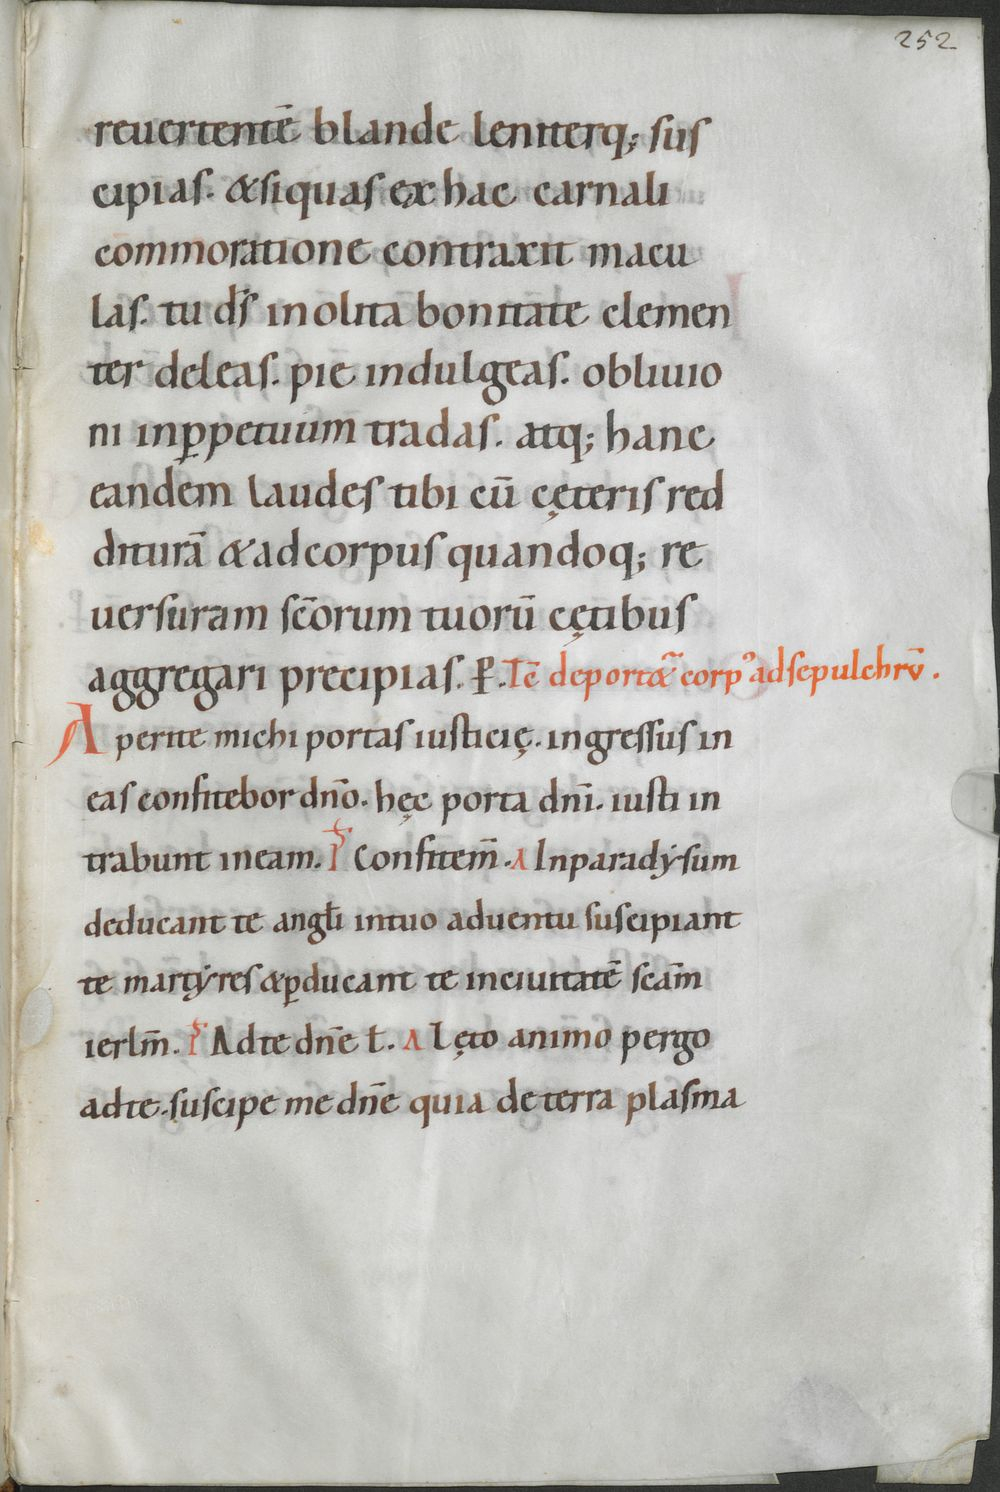 252
reuertentē blande leniterq; sus
cipias. & si quas ex hac carnali
commoratione contraxit macu
las. tu d̄s inolita bonitate clemen
ter deleas. pie indulgeas. obliuio
ni inp̱petuum tradas. atq; hanc
eandem laudes tibi cū cęteris red
diturā & ad corpus quandoq; re
uersuram sc̄orum tuorū cętibus
aggregari precipias. P̱. Tē deport&̃ corpꝰ ad sepulchrū.
Aperite michi portas iusticię. ingressus in
eas confitebor dn̄o. hęc porta dn̄i. iusti in
trabunt in eam. P̃s Confitem̄. A In paradẏsum
deducant te angłi in tuo aduentu suscipiant
te martẏres & ꝑducant te in ciuitatē sc̄am
ierlm̄. P̃s Ad te dn̄e ł. A Lęto animo pergo
ad te. suscipe me dn̄e quia de terra plasma